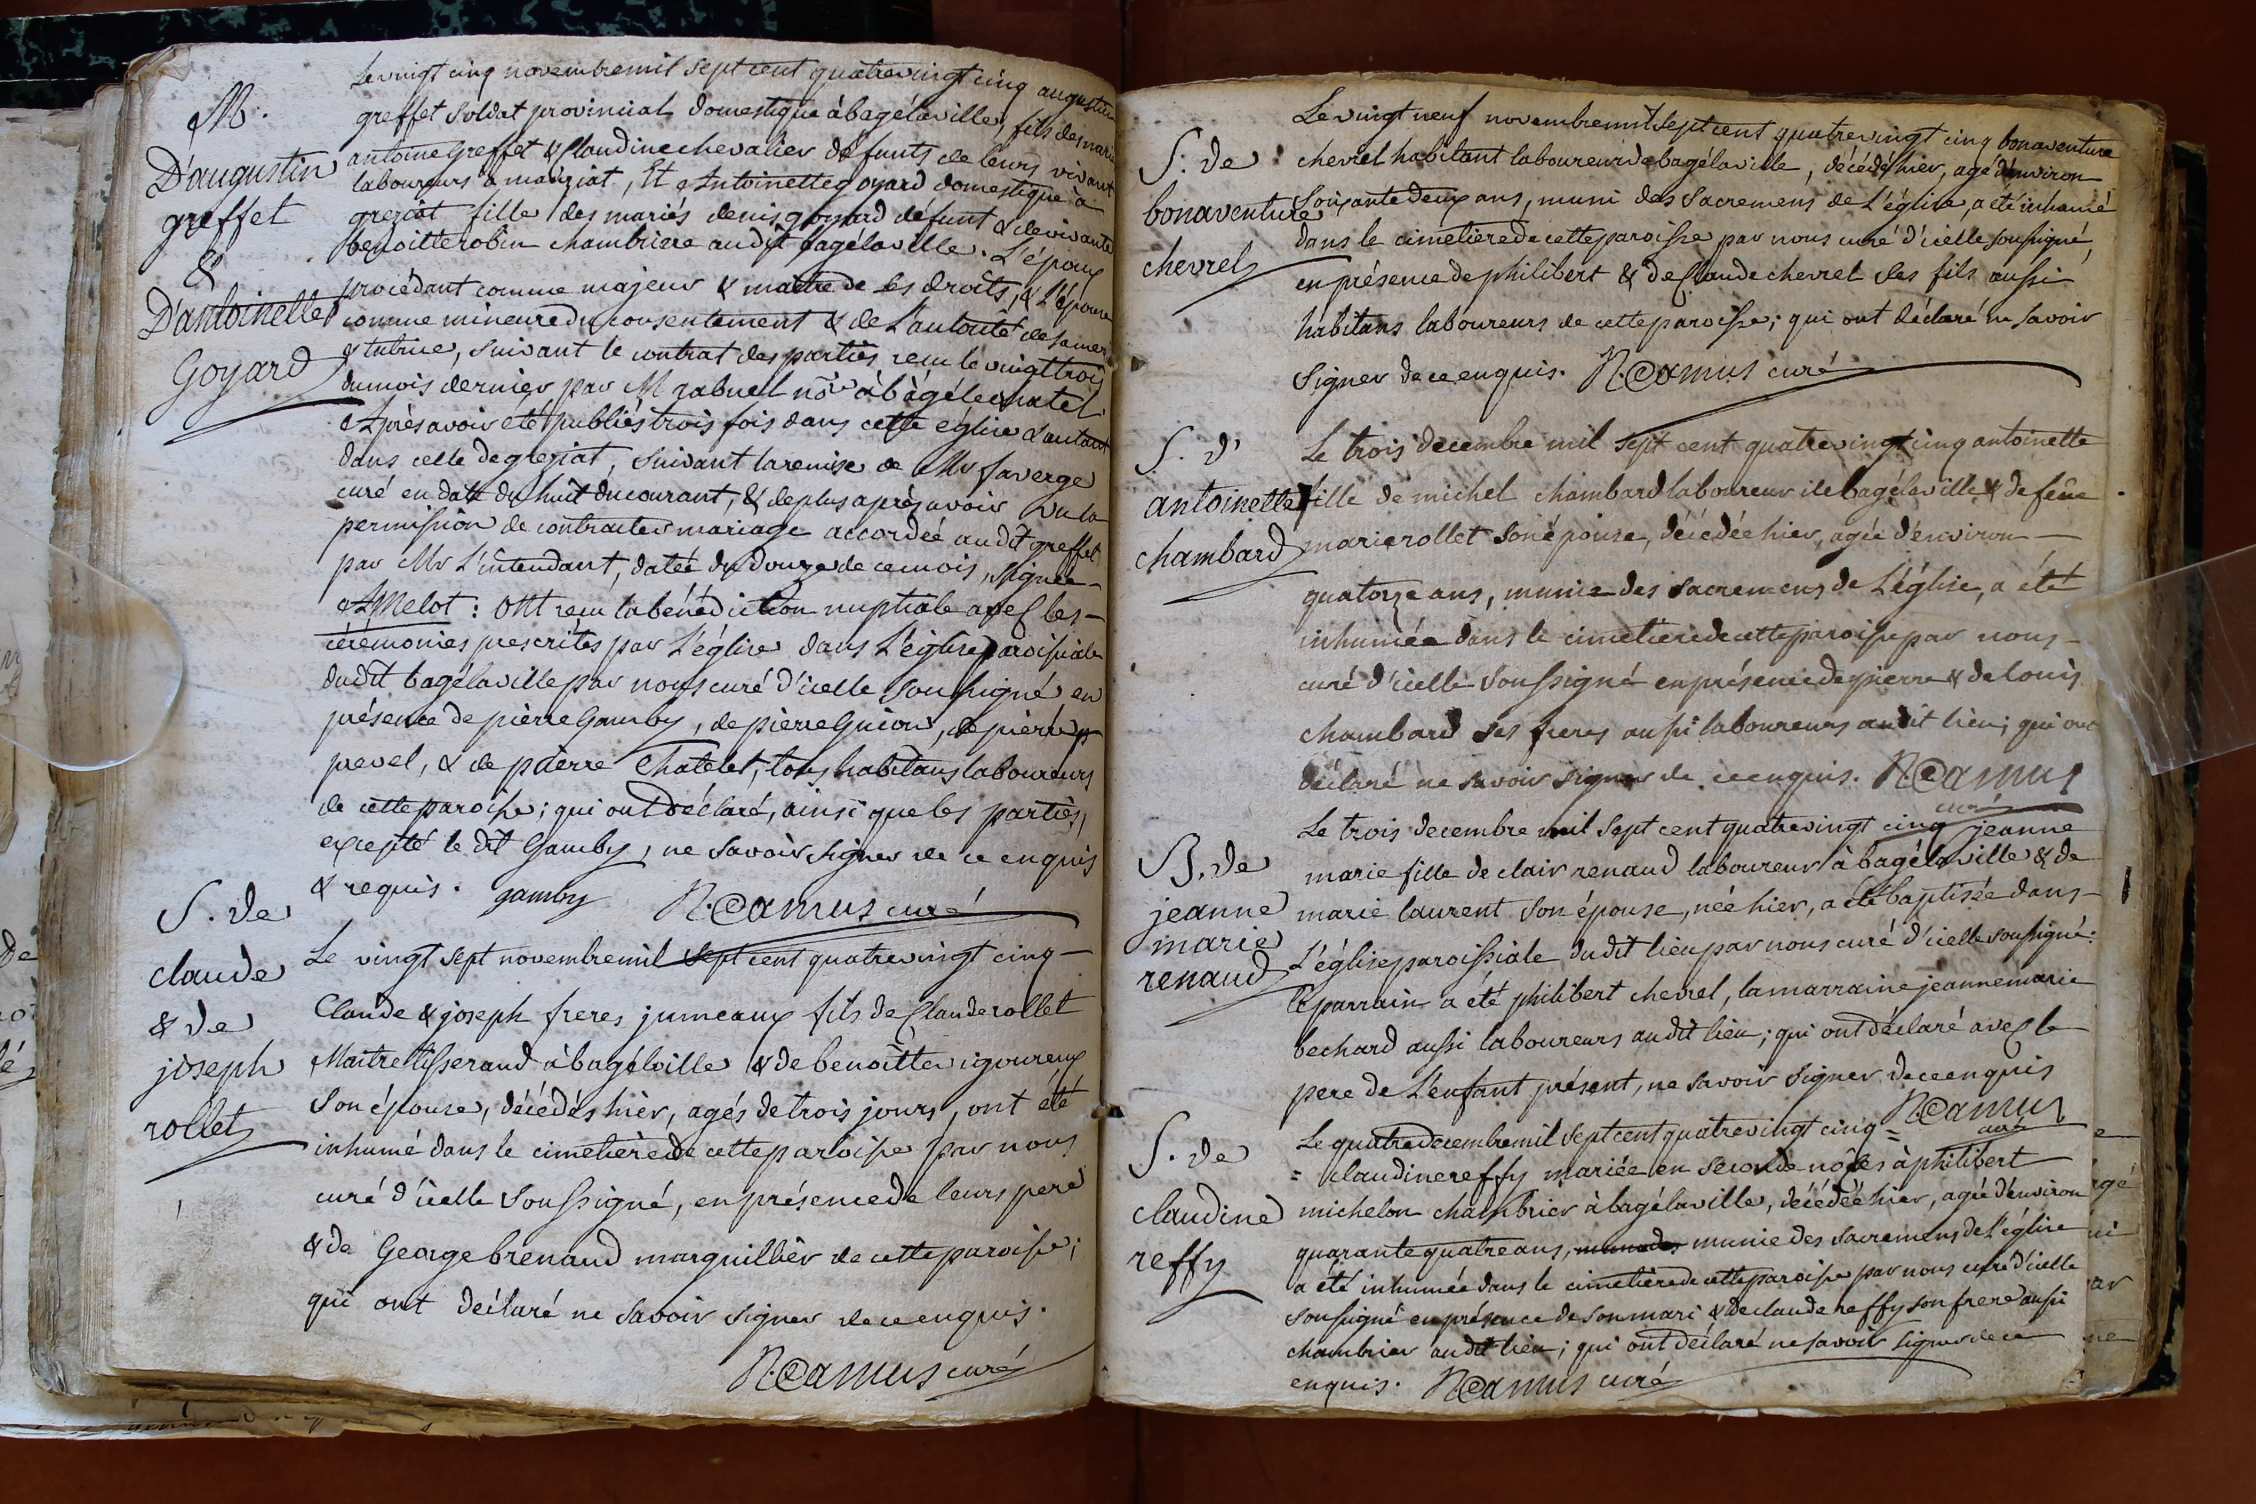 M.
D'augustin
greffet
&
D'antoinette
Goyard
Le vingt cinq novembre mil sept cent quatrevingt cinq augustin
greffet soldat provincial domestique à bagélaville, fils des mariés
antoine Greffet & Claudine chevalier défunts de leurs vivant
laboureurs a manziat, Et antoinette goyard domestique à
greziat fille des mariés denis goyard défunt & de vivante
benoitte robin chambriere audit bagélaville. L'époux
procédant comme majeur & maitre de ses droits, & L'épouse
comme mineure du consentement & de L'autorité de sa mere
& tutrice, suivant le contrat des parties recu le vingt trois
du mois dernier par M rabuel nore à bàgélechatel.
Après avoir été publiés trois fois dans cette église & autant
dans celle de greziat, suivant la remise de Mr faverge
curé en date du huit du courant, & deplus après avoir vu la
permission de contracter mariage accordée audit greffet
par Mr L'intendant, datée du douze de ce mois, signée
Amelot : Ont recu la bénédiction nuptiale avec les
cérémonies prescrites par L'église dans L'église paroissiale
dudit bagélaville par nous curé d'icelle soussigné en
présence de pierre Gamby, de pierre Guion, de pierre
prevel, & de pierre Chatelet, tous habitans laboureurs
de cette paroisse ; qui ont déclaré, ainsi que les parties,
excepté le dit Gamby, ne savoir signer de ce enquis
& requis. gamby N. Camus curé
S. de
claude
& de
joseph
rollet
Le vingt sept novembre mil sept cent quatrevingt cinq
Claude & joseph freres jumeaux fils de Claude rollet
Maitre tisserand à bagélaville & de benoitte vigoureux
son épouse, décédés hièr, agés de trois jours, ont été
inhumé dans le cimetière de cette paroisse par nous
curé d'icelle soussigné, en présence de leurs pere
& de George brenaud marguillièr de cette paroisse ;
qui ont déclaré ne savoir signer de ce enquis.
N. Camus curé
S. de
bonaventure
chevrel
Le vingt neuf novembre mil sept cent quatrevingt cinq bonaventure
chevrel habitant laboureur de bagélaville, décédé hier, agé d'environ
soixante deux ans, muni des Sacremens de L'église, a été inhumé
dans le cimetiere de cette paroisse par nous curé d'icelle soussigné,
en présence de philibert & de Claude chevrel ses fils aussi
habitans laboureurs de cette paroisse ; qui ont déclaré ne savoir
signer de ce enquis. N. Camus curé
S. d'
antoinette
chambard
Le trois decembre mil sept cent quatrevingt cinq antoinette
fille de michel chambard laboureur de bagélaville & de feue
marie rollet son épouse, décédée hier, agée d'environ
quatorze ans, munie des sacremens de L'église, a été
inhumée dans le cimetiere de cette paroisse par nous
curé d'icelle soussigné en présence de pierre & de louis
chambard ses freres aussi laboureurs audit lieu ; qui ont
déclaré ne savoir signer de ce enquis. N. Camus
curé
B. de
jeanne
marie
renaud
Le trois decembre mil sept cent quatrevingt cinq jeanne
marie fille de clair renaud laboureur à bagélaville & de
marie laurent son épouse, née hier, a été baptisée dans
L'église paroissiale dudit lieu par nous curé d'icelle soussigné :
le parrain a été philibert chevrel, la marraine jeanne marie
bechard aussi laboureurs audit lieu ; qui ont déclaré avec le
pere de L'enfant présent, ne savoir signer de ce enquis
N. Camus
curé
S. de
claudine
reffy
Le quatre decembre mil sept cent quatrevingt cinq =
= claudine reffy mariée en seconde nôces à philibert
michelon chambrier à bagélaville, décédée hier, agée d'environ
quarante quatre ans, munie des sacremens de L'église
a été inhumée dans le cimetière de cette paroisse par nous curé d'icelle
soussigné en présence de son mari & de claude reffy son frere aussi
chambrier audit lieu ; qui ont déclaré ne savoir signer de ce
enquis. N. Camus curé